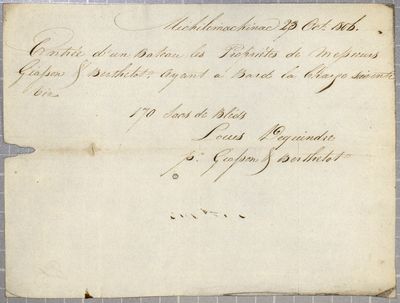 Michilimackinac 23 Oct. 1806.
Entrée d'un Bateau les Propriétés de Messieurs
Giasson & Berthelot Ayant à Bord la Charge suivante
170 Sacs de Bleds
Louis Peguindre
p: Giasson & Berthelot